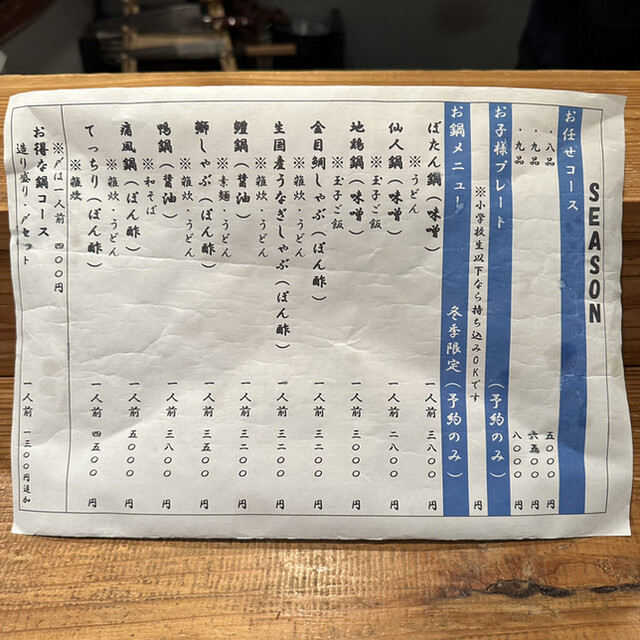 SEASON
お任せコース
・八品 五〇〇〇円
・九品 六五〇〇円
・九品 八〇〇〇円
お子様プレート （予約のみ）
※小学校生以下なら持ち込みOKです 円
お鍋メニュー 冬季限定（予約のみ）
ぼたん鍋（味噌） 一人前 三八〇〇 円
※うどん
仙人鍋（味噌） 一人前 二八〇〇 円
※玉子ご飯
地鶏鍋（味噌） 一人前 三〇〇〇 円
※玉子ご飯
金目鯛しゃぶ（ぽん酢） 一人前 三二〇〇 円
※雑炊・うどん
生国産うなぎしゃぶ（ぽん酢） 一人前 三二〇〇 円
※雑炊・うどん
鱧鍋（醤油） 一人前 三二〇〇 円
※素麺・うどん
鰤しゃぶ（ぽん酢） 一人前 三五〇〇 円
※雑炊・うどん
鴨鍋（醤油） 一人前 三八〇〇 円
※和そば
痛風鍋（ぽん酢） 一人前 五〇〇〇 円
※雑炊・うどん
てっちり（ぽん酢） 一人前 四五〇〇 円
※雑炊
※〆は一人前 四〇〇円
お得な鍋コース
造り盛り・〆セット 一人前 一三〇〇円追加